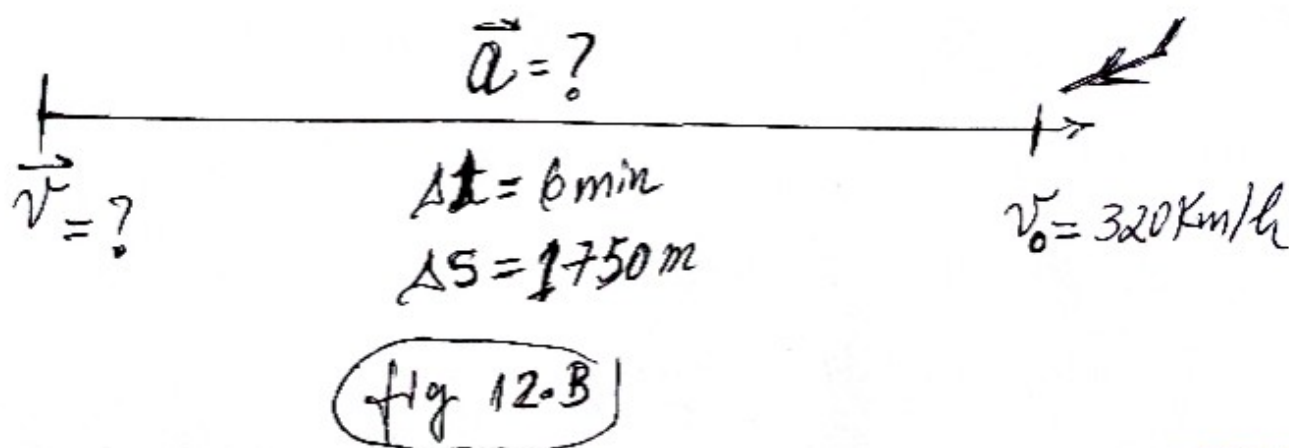 a⃗ = ?
v⃗ = ?
Δt = 6 min
Δs = 1750 m
v₀ = 320 Km/h
fig 12.B